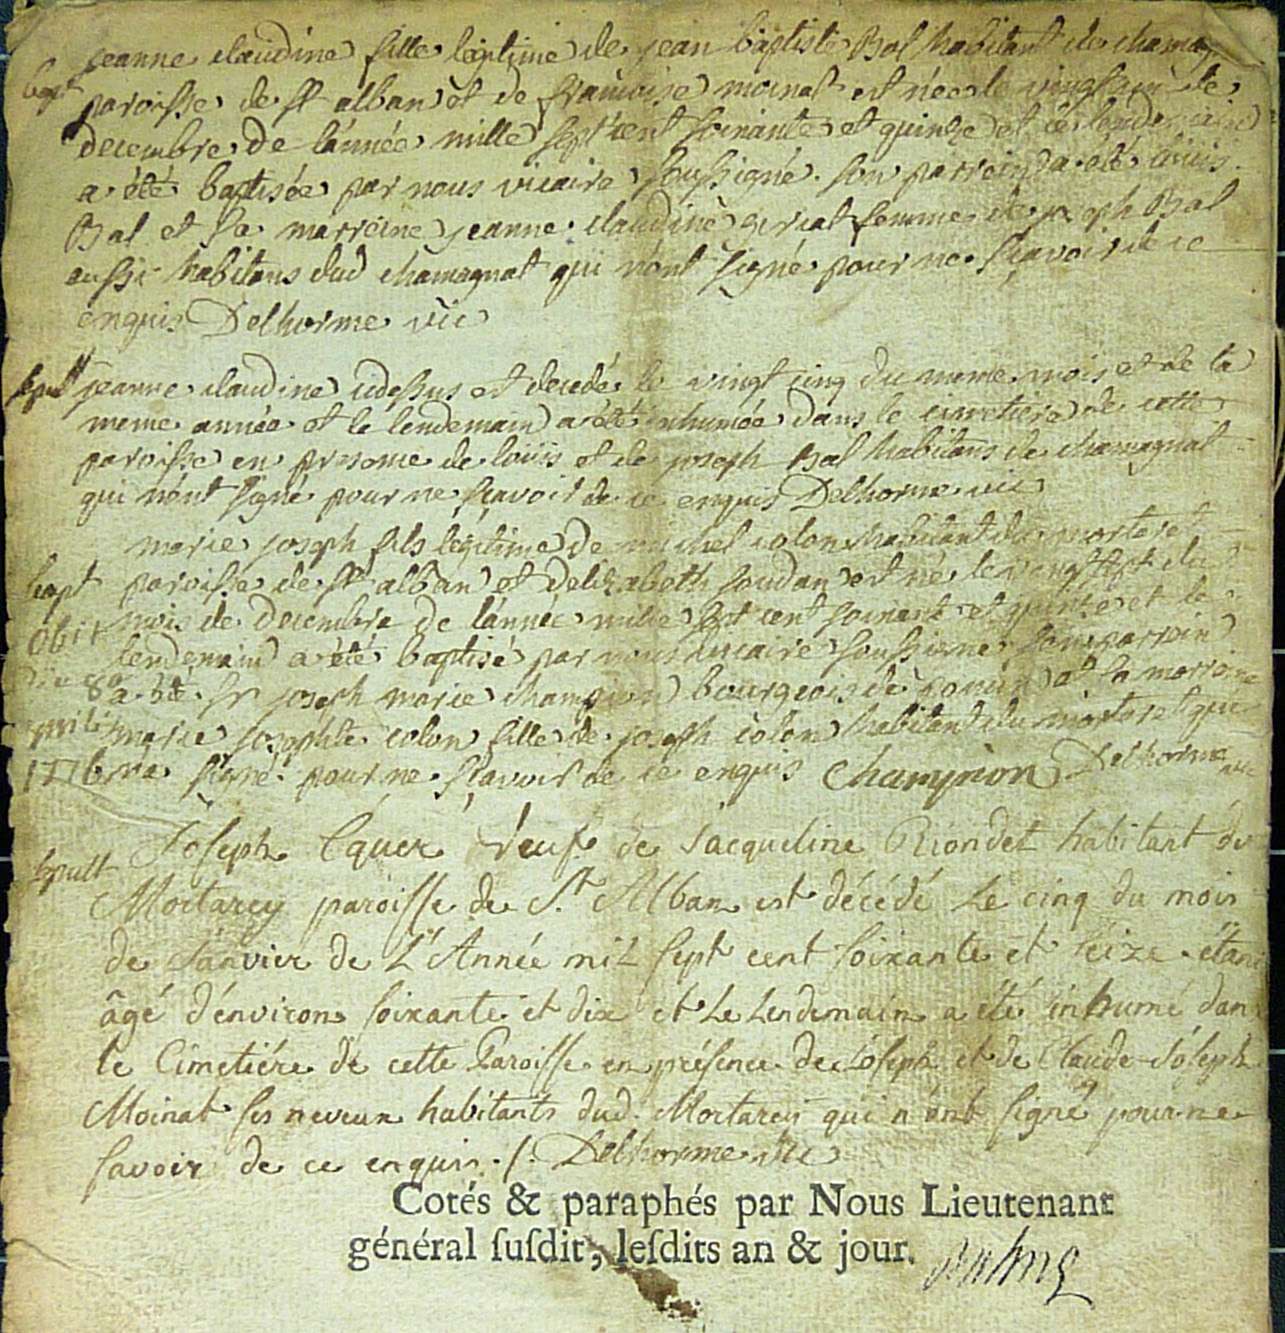 jeanne claudine fille legitime de jean baptiste Bal habitant de chamag
bapt
paroisse de st alban et de francoise moinat est née le vingt
decembre de lánnée mille sept cent soixante et quinze et le lendemain
a été baptisée par nous vicaire soussigné son parrein a été loüis
Bal et sa marreine jeanne claudine femme de joseph Bal
aussi habitans dud chamagnat qui nónt signé pour ne sçavoir de ce
enquis Delhorme vic
sepult jeanne claudine cdessus est decedée le vingt cinq du meme mois et de la
meme année et le lendemain a été inhumée dans le cimetiere de cette
paroisse en presence de loüis et de joseph Bal habitans de chamagnat
qui nónt signé pour ne sçavoir de ce enquis Delhorme vic
marie joseph fils legitime de michel colon habitant du mortaret
bapt paroisse de st alban et delizabeth soudan est né le vingt sept du
obiit mois de decembre de lánnée mille sept cent soixante et quinze et le
lendemain a été baptisé par nous vicaire soussigné son parrein
die 8a a été sr joseph marie champion bourgeois de et sa marreine
aprilis marie josephte colon fille de joseph colon habitant du mortaret qui
1776 na signé pour ne sçavoir de ce enquis Champion Delhorme vic
Joseph Veuf de Jacqueline Riondet habitant du
sepult
Mortarey paroisse de St Alban est décédé le cinq du mois
de Janvier de L'Année mil sept cent soixante et seize étant
âgé d'environ soixante et dix et le lendemain a été inhumé dans
le Cimetiére de cette Paroisse en présence de Joseph et de Claude Joseph
Moinat ses neveux habitants dud. Mortarey qui n'ont signé pour ne
savoir de ce enquis ./. Delhorme vic
Cotés & paraphés par Nous Lieutenant
général ſuſdit, leſdits an & jour.